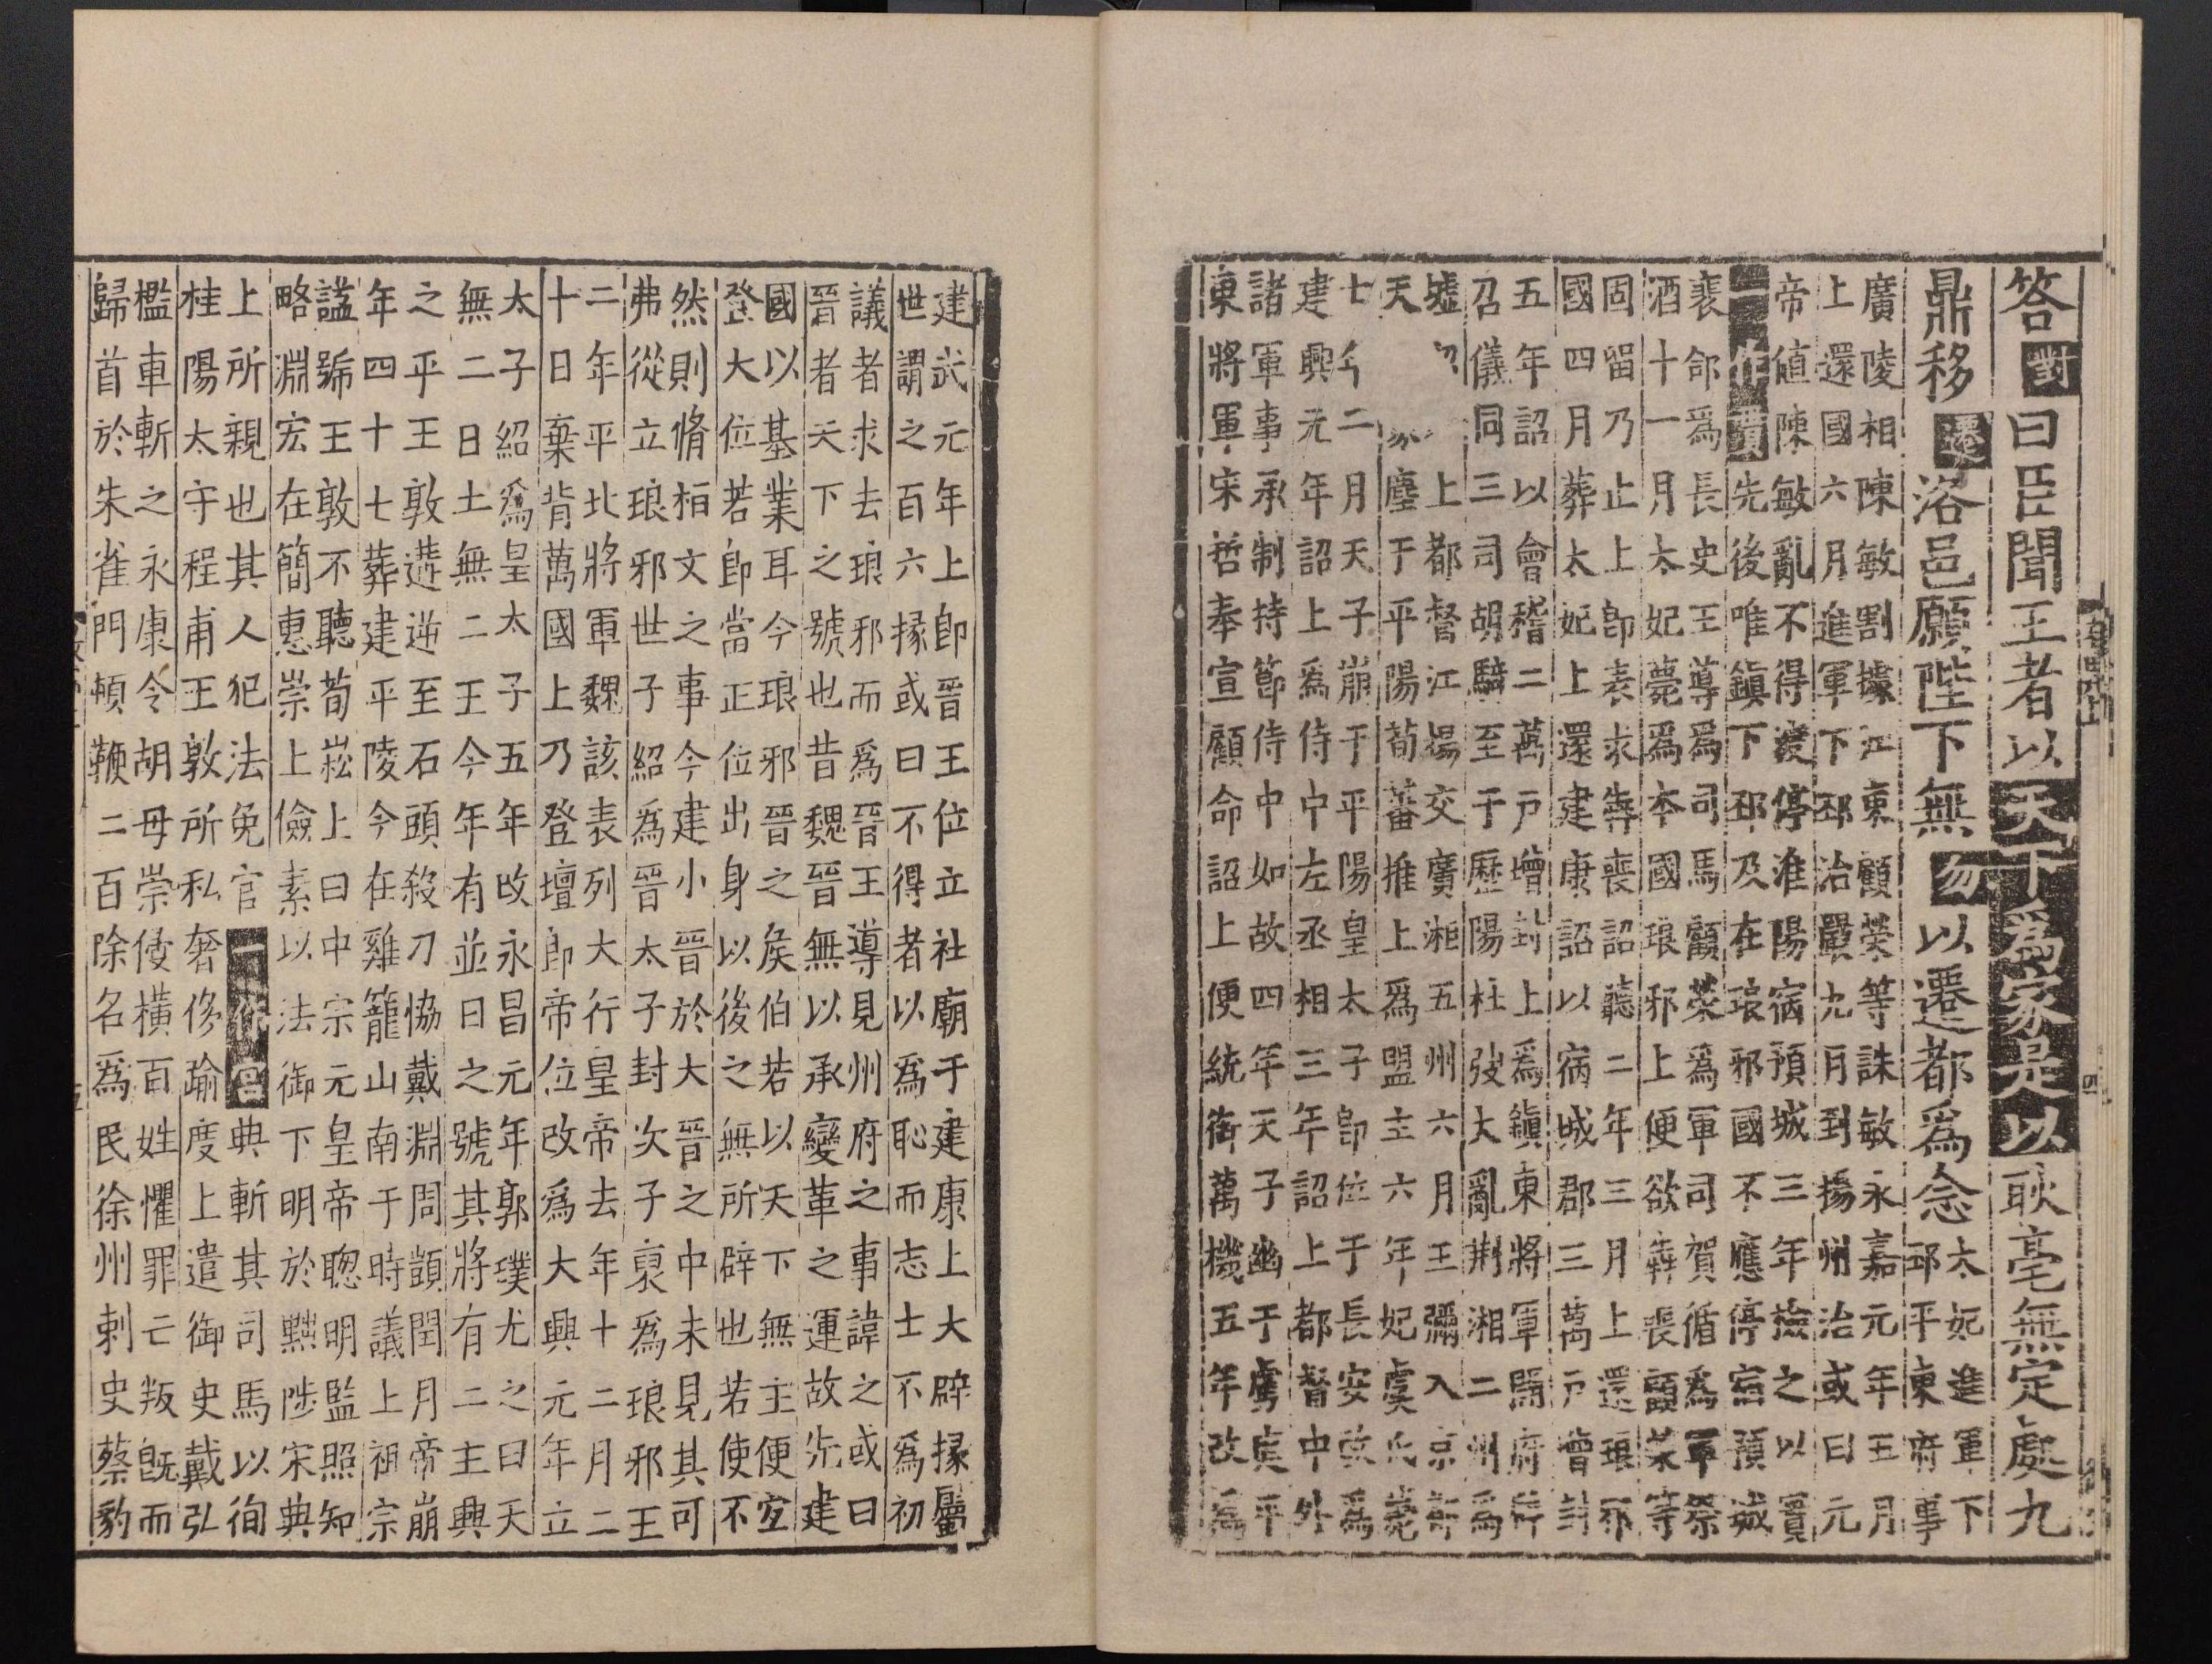 答對曰臣聞王者以天下爲家是以耿亳無定處九
鼎移遷洛邑願陛下無勿以遷都爲念
太妃進軍下
邳平東府事
廣陵相陳敏割據江東顧榮等誅敏永嘉元年五月
上還國六月進軍下邳治嚴九月到揚州治或曰元
帝値陳敏亂不得渡停淮陽宿預城三年檢之以實
一作賷先後唯鎮下邳及在琅邪國不應停宿預城
裴郃爲長史王導爲司馬顧榮爲軍司賀循爲軍祭
酒十一月太妃薨爲本國琅邪上便欲犇喪顧榮等
固留乃止上即表求犇喪詔聽二年三月上還琅邪
國四月葬太妃上還建康詔以宿城郡三萬戸會封
五年詔以會稽二萬戸增封上爲鎮東將軍開府行
召儀同三司胡騎至于歷陽杜弢大亂荆湘二州爲
墟上都督江揚交廣湘五州六月王彌入京
天塵于平陽荀蕃推上爲盟主六年妃虞氏薨
七年二月天子崩于平陽皇太子即位于長安改爲
建興元年詔上爲侍中左丞相三年詔上都督中外
諸軍事承制持節侍中如故四年天子幽于虜寅平
東將軍宋哲奉宣顧命詔上便統衛萬機五年改爲
建武元年上即晉王位立社廟于建康上大辟掾屬
世謂之百六掾或曰不得者以爲恥而志士不爲初
議者求去琅邪而爲晉王導見州府之事諱之或曰
晉者天下之號也昔魏晉無以承變革之運故先建
國以基業耳今琅邪晉之矦伯若以天下無主便宐
登大位若即當正位出身以後之無所辟也若使不
然則脩栢文之事今建小晉於大晉之中未見其可
弗從立琅邪世子紹爲晉太子封次子裒爲琅邪王
二年平北將軍魏該表列大行皇帝去年十二月二
十日棄背萬國上乃登壇即帝位改爲大興元年立
太子紹爲皇太子五年改永昌元年郭璞尤之曰天
無二日土無二王今年有並日之號其將有二主興
之平王敦遘逆至石頭殺刀恊戴淵周顗閏月帝崩
年四十七葬建平陵今在雞籠山南于時議上祖宗
諡號王敦不聽荀崧上曰中宗元皇帝聰明監照知
略淵宏在簡惠崇上儉素以法御下明於黜陟宋典
上所親也其人犯法免官一作宫典斬其司馬以徇
桂陽太守程甫王敦所私奢侈踰度上遣御史戴弘
檻車斬之永康令胡毋崇侵橫百姓懼罪亡叛旣而
歸首於朱雀門頓鞭二百除名爲民徐州刺史蔡豹